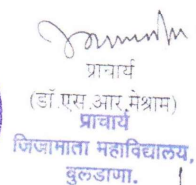 प्राचार्य
(डॉ.एस.आर.मेश्राम)
प्राचार्य
जिजामाता महाविद्यालय,
बुलडाणा.